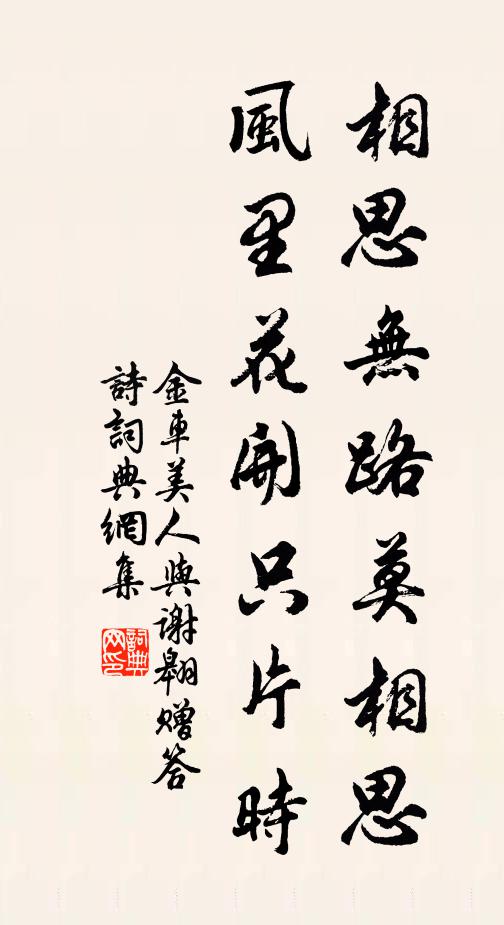 相思無路莫相思
風里花開只片時
金車美人與謝翱贈答
詩詞典網集
詞典网印